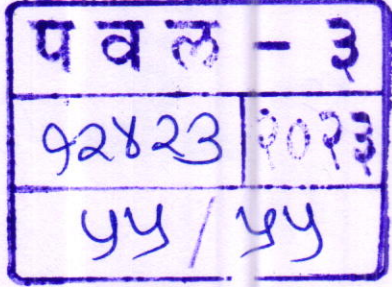 प व ल - ३
१२४२३ | २०२३
५५ / ५५